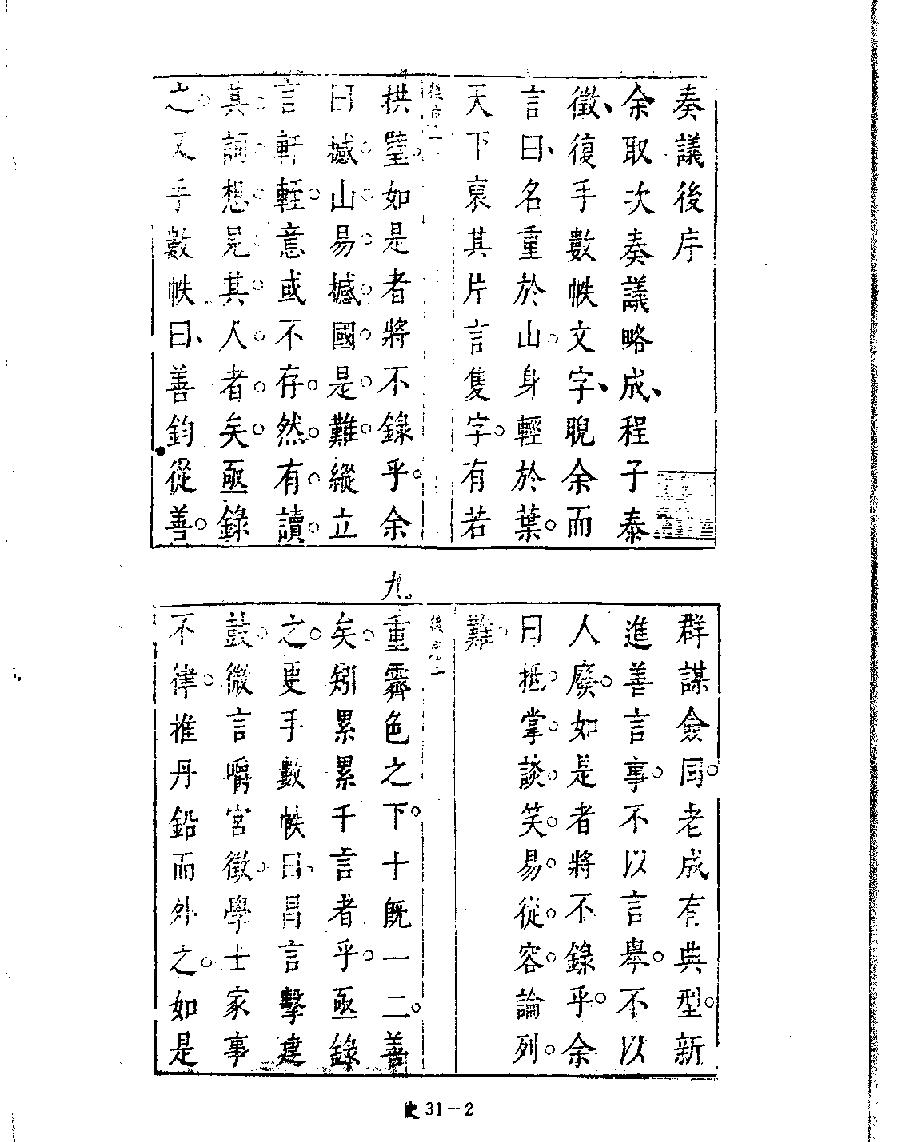 奏議後序
余取次奏議略成、程子泰
徵、復手數帙文字、睨余而
言曰、名重於山。身輕於葉。
天下裒其片言隻字。有若
拱璧。如是者將不錄乎。余
曰。撼山易。撼國是難。縱立
言軒輊。意或不存。然有讀。
其詞。想見其人者矣。亟錄
之。又手數帙曰、善鈞從善。
九
群謀僉同。老成有典型。新
進善言事。不以言舉。不以
人廢。如是者將不錄乎。余
曰。抵掌談笑易。從容論列。
難。
後序二
重霽色之下。十旣一二。善
矣。矧累累千言者乎。亟錄
之。更手數帙曰、昌言擊建
鼓。微言嚼宮徵。學士家事
不律。推丹鉛而外之。如是
史 31-2